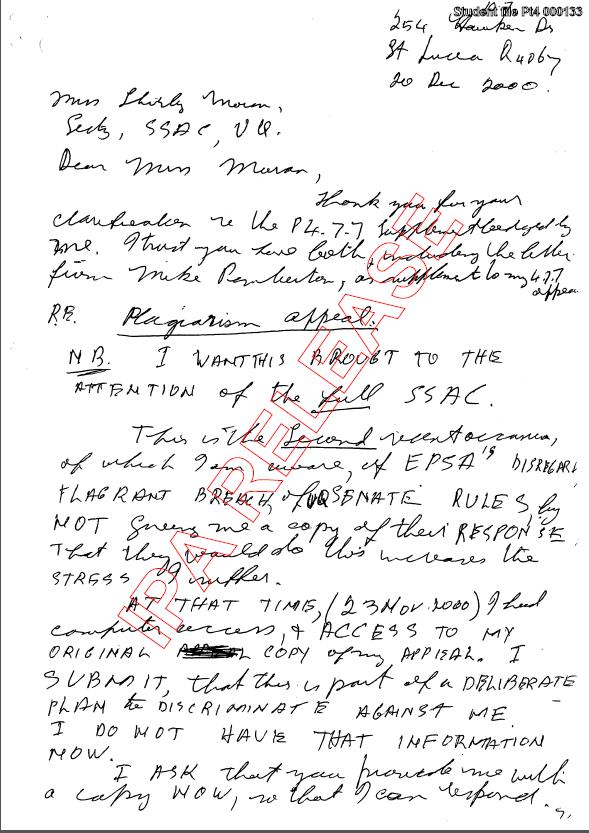 Student file Pt4 000133
254 Hawken Dr
St Lucia Q 4067
20 Dec 2000.
Miss Shirly Moran,
Secty, SSAC, UQ.
Dear Miss Moran,
Thank you for your
clarification re the P4.7.7 Supplement lodged by
me. I trust you have both, including the letter
from Mike Pemberton, as supplement to my 4.7.7
appeal
RE. Plagiarism appeal.
NB. I WANT THIS BROUGT TO THE
ATTENTION of the full SSAC.
This is the Second recent occasion,
of which I am aware, of EPSA's DISREGARD
FLAGRANT BREACH, of UQ SENATE RULES, by
NOT giving me a copy of their RESPONSE
That they would do this increases the
STRESS I suffer.
AT THAT TIME, (23 NOV. 2000) I had
computer access, & ACCESS TO MY
ORIGINAL COPY of my APPEAL. I
SUBMIT, that this is part of a DELIBERATE
PLAN to DISCRIMINATE AGAINST ME.
I DO NOT HAVE THAT INFORMATION
NOW.
I ASK that you provide me with
a copy NOW, so that I can respond.
IPA RELEASE